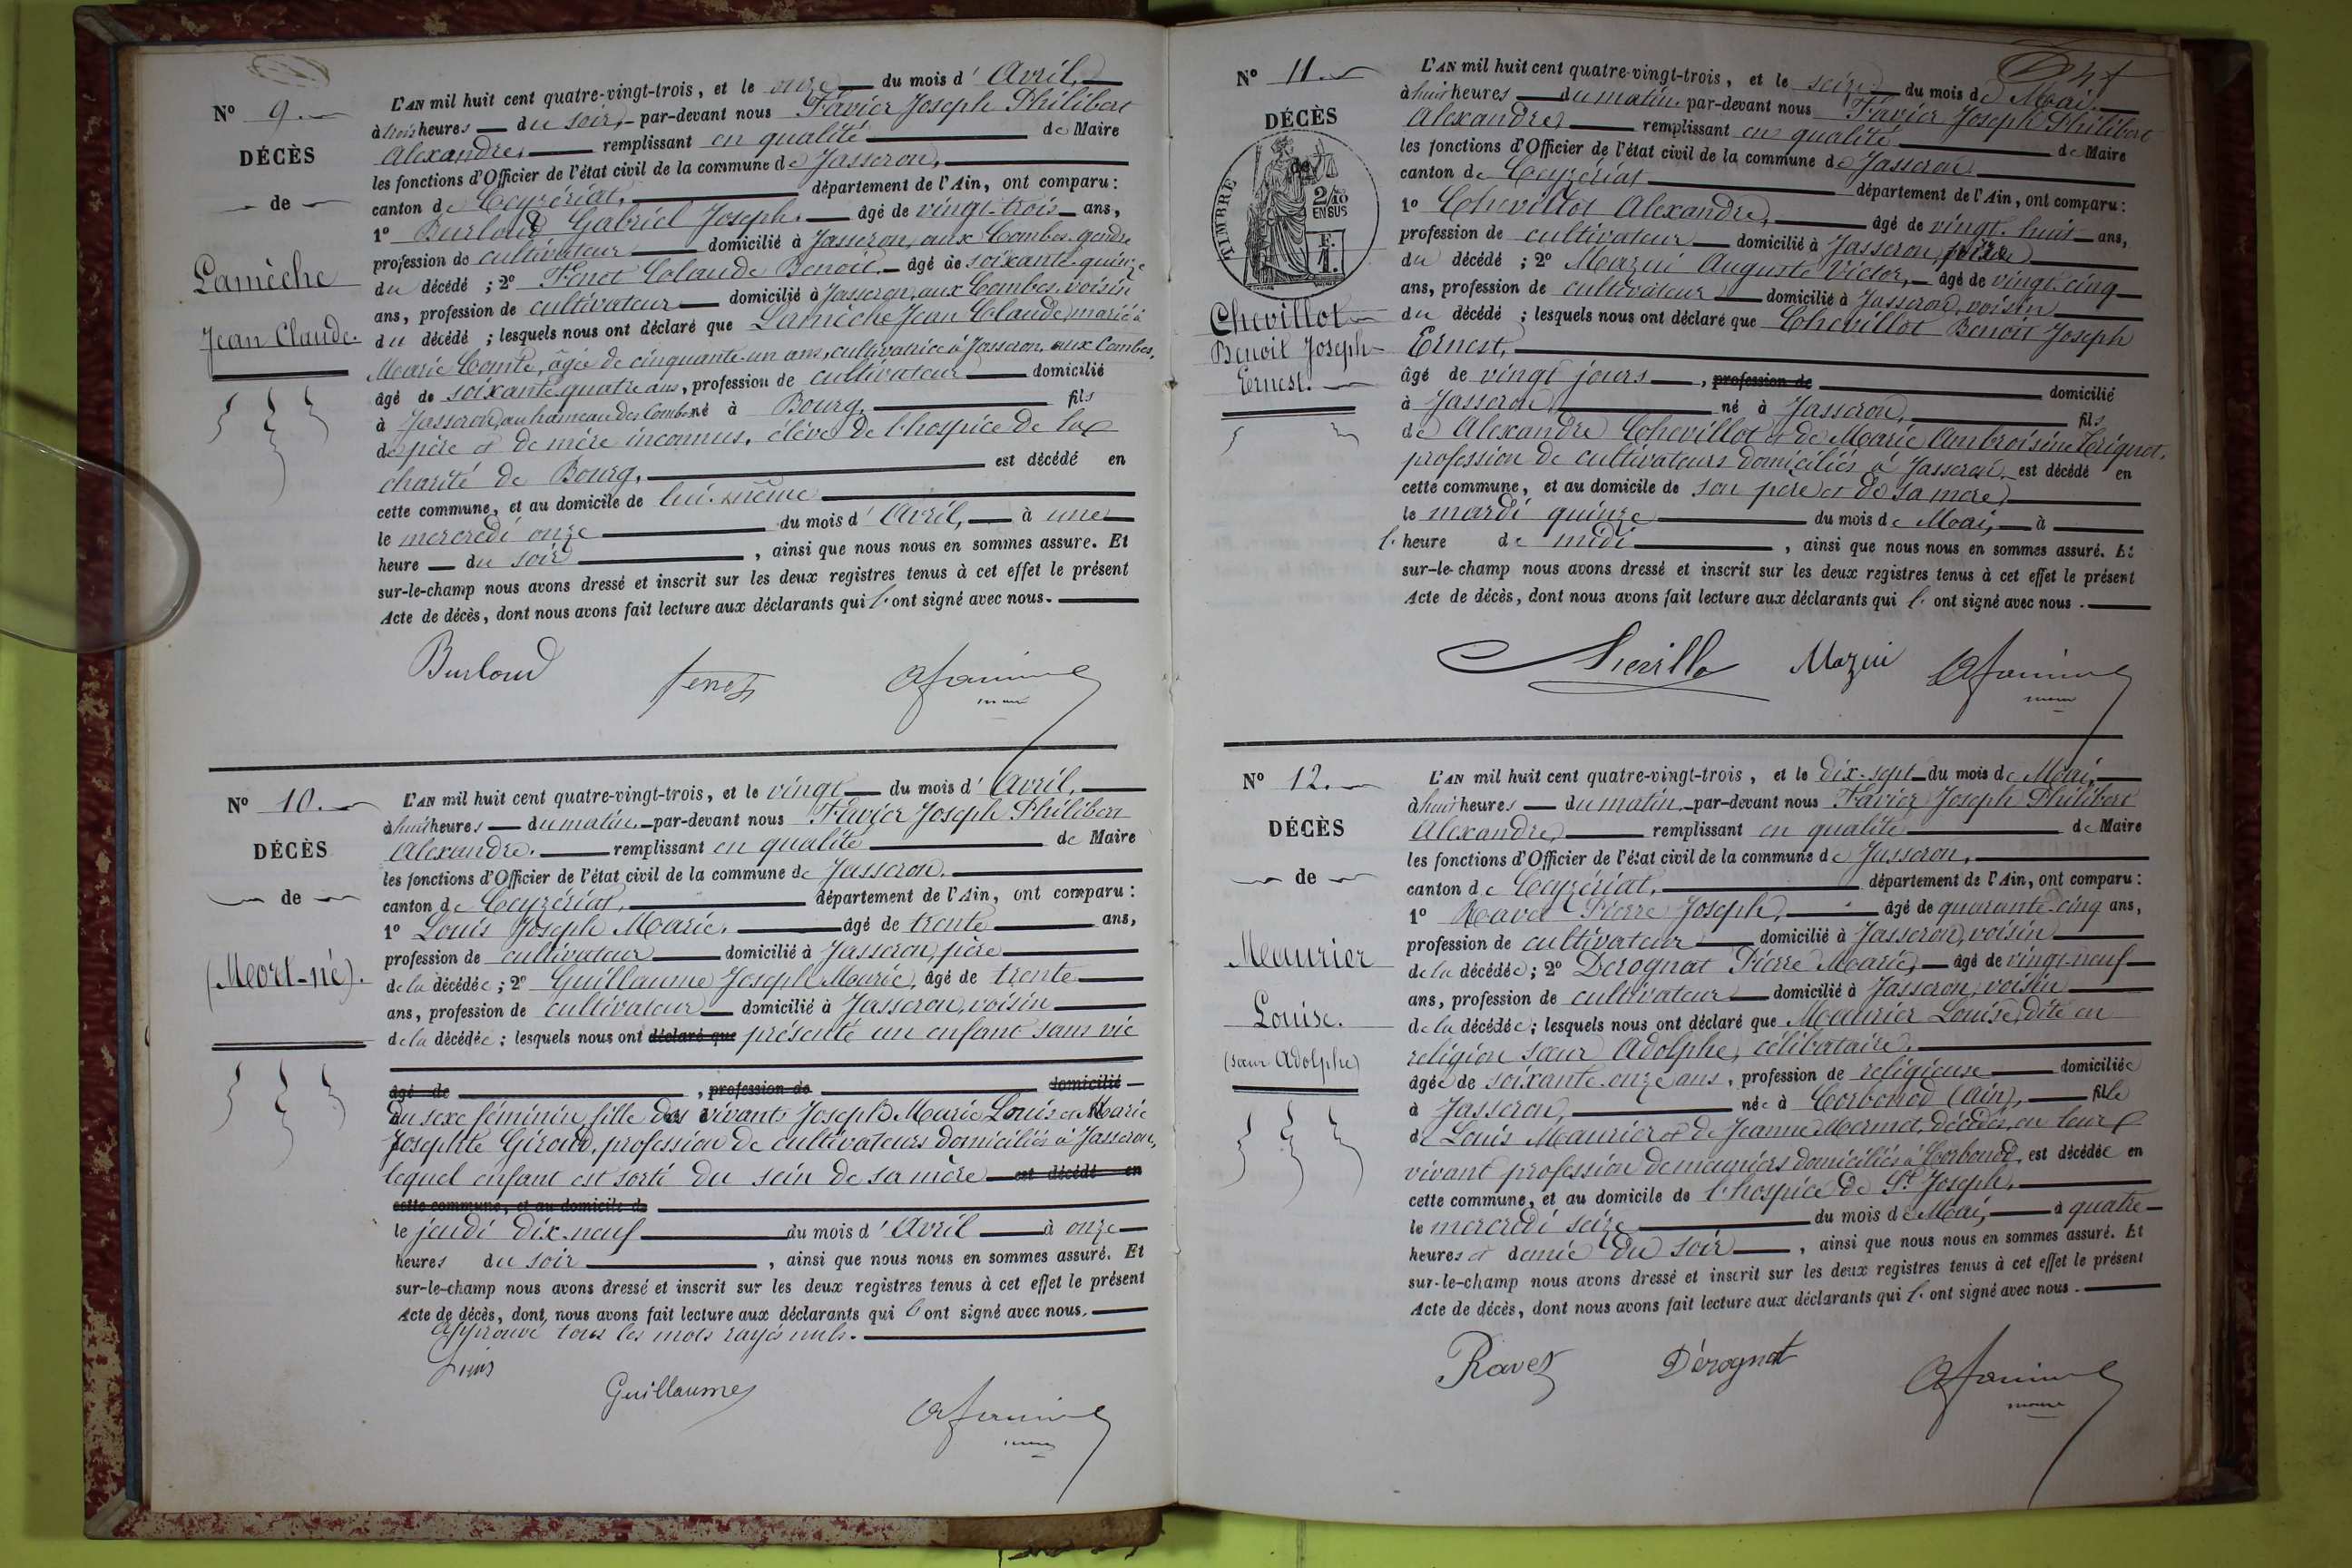 N° 9.
DÉCÈS
de
Lamèche
Jean Claude.
L'AN mil huit cent quatre-vingt-trois, et le onze du mois d'Avril,
à trois heures du soir, par-devant nous Favier Joseph Philibert
Alexandre, remplissant en qualité de Maire
les fonctions d'Officier de l'état civil de la commune de Jasseron,
canton de Ceyzériat, département de l'Ain, ont comparu :
1° Burloud Gabriel Joseph, âgé de vingt-trois ans,
profession de cultivateur domicilié à Jasseron, aux Combes, gendre
du décédé ; 2° Fenet Claude Benoit, âgé de soixante-quinze
ans, profession de cultivateur domicilié à Jasseron, aux Combes, voisin
du décédé ; lesquels nous ont déclaré que Lamèche Jean Claude, marié à
Marie Comte, âgée de cinquante-un ans, cultivatrice à Jasseron, aux Combes,
âgé de soixante-quatre ans, profession de cultivateur domicilié
à Jasseron, au hameau des Combes né à Bourg, fils
de père et de mère inconnus, élève de l'hospice de la
charité de Bourg, est décédé en
cette commune, et au domicile de lui-même
le mercredi onze du mois d'Avril, à une
heure du soir, ainsi que nous nous en sommes assuré. Et
sur-le-champ nous avons dressé et inscrit sur les deux registres tenus à cet effet le présent
Acte de décès, dont nous avons fait lecture aux déclarants qui l'ont signé avec nous.
Burloud Fenet
N° 10.
DÉCÈS
de
(Mort-né).
L'AN mil huit cent quatre-vingt-trois, et le vingt du mois d'Avril,
à huit heures du matin, par-devant nous Favier Joseph Philibert
Alexandre, remplissant en qualité de Maire
les fonctions d'Officier de l'état civil de la commune de Jasseron,
canton de Ceyzériat, département de l'Ain, ont comparu :
1° Louis Joseph Marie, âgé de trente ans,
profession de cultivateur domicilié à Jasseron, père
de la décédée ; 2° Guillaume Joseph Marie, âgé de trente
ans, profession de cultivateur domicilié à Jasseron, voisin
de la décédée ; lesquels nous ont déclaré que présenté un enfant sans vie
âgé de , profession de domicilié
du sexe féminin, fille des vivants Joseph Marie Louis et Marie
Josephte Giroud, profession de cultivateurs domiciliés à Jasseron,
lequel enfant est sorti du sein de sa mère est décédé en
cette commune, et au domicile de
le jeudi dix-neuf du mois d'Avril à onze
heures du soir, ainsi que nous nous en sommes assuré. Et
sur-le-champ nous avons dressé et inscrit sur les deux registres tenus à cet effet le présent
Acte de décès, dont nous avons fait lecture aux déclarants qui l'ont signé avec nous.
Approuvé tous les mots rayés nuls.
Louis
Guillaume
N° 11.
DÉCÈS
de
TIMBRE
2/10
EN SUS
F.
1.
Chevillot
Benoit Joseph
Ernest.
L'AN mil huit cent quatre-vingt-trois, et le seize du mois de Mai,
à huit heures du matin par-devant nous Favier Joseph Philibert
Alexandre, remplissant en qualité de Maire
les fonctions d'Officier de l'état civil de la commune de Jasseron
canton de Ceyzériat département de l'Ain, ont comparu :
1° Chevillot Alexandre, âgé de vingt-huit ans,
profession de cultivateur domicilié à Jasseron, père
du décédé ; 2° Mazui Auguste Victor, âgé de vingt-cinq
ans, profession de cultivateur domicilié à Jasseron, voisin
du décédé ; lesquels nous ont déclaré que Chevillot Benoit Joseph
Ernest,
âgé de vingt jours, profession de domicilié
à Jasseron, né à Jasseron, fils
de Alexandre Chevillot et de Marie Ambroisine
profession de cultivateurs domiciliés à Jasseron, est décédé en
cette commune, et au domicile de son père et de sa mère,
le mardi quinze du mois de Mai, à
l'heure de midi, ainsi que nous nous en sommes assuré. Et
sur-le-champ nous avons dressé et inscrit sur les deux registres tenus à cet effet le présent
Acte de décès, dont nous avons fait lecture aux déclarants qui l'ont signé avec nous.
Mazui
N° 12.
DÉCÈS
de
Maurier
Louise.
(sœur Adolphe)
L'AN mil huit cent quatre-vingt-trois, et le dix-sept du mois de Mai,
à huit heures du matin, par-devant nous Favier Joseph Philibert
Alexandre, remplissant en qualité de Maire
les fonctions d'Officier de l'état civil de la commune de Jasseron,
canton de Ceyzériat, département de l'Ain, ont comparu :
1° Ravet Pierre Joseph, âgé de quarante-cinq ans,
profession de cultivateur domicilié à Jasseron, voisin
de la décédée ; 2° Derognat Pierre Marie, âgé de vingt-neuf
ans, profession de cultivateur domicilié à Jasseron, voisin
de la décédée ; lesquels nous ont déclaré que Maurier Louise, dite en
religion sœur Adolphe, célibataire,
âgée de soixante-onze ans, profession de religieuse domiciliée
à Jasseron, née à Corbonod (Ain), fille
de Louis Maurier et de Jeanne Mermet, décédés, en leur
vivant profession de meuniers domiciliés à Corbonod, est décédée en
cette commune, et au domicile de l'hospice de St Joseph,
le mercredi seize du mois de Mai, à quatre
heures et demie du soir, ainsi que nous nous en sommes assuré. Et
sur-le-champ nous avons dressé et inscrit sur les deux registres tenus à cet effet le présent
Acte de décès, dont nous avons fait lecture aux déclarants qui l'ont signé avec nous.
Ravet Dérognat